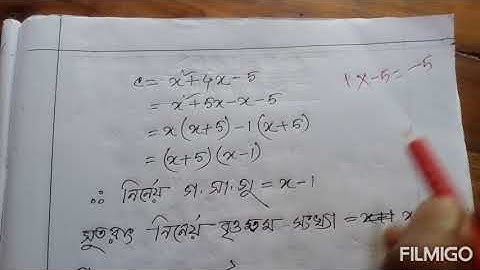 c = x²+4x-5
1 x-5= -5
= x²+5x-x-5
= x(x+5)-1(x+5)
= (x+5)(x-1)
∴ নির্নেয় গ.সা.গু = x-1
সুতরাং নির্নেয় বৃহত্তম সংখ্যা = x
FILMIGO